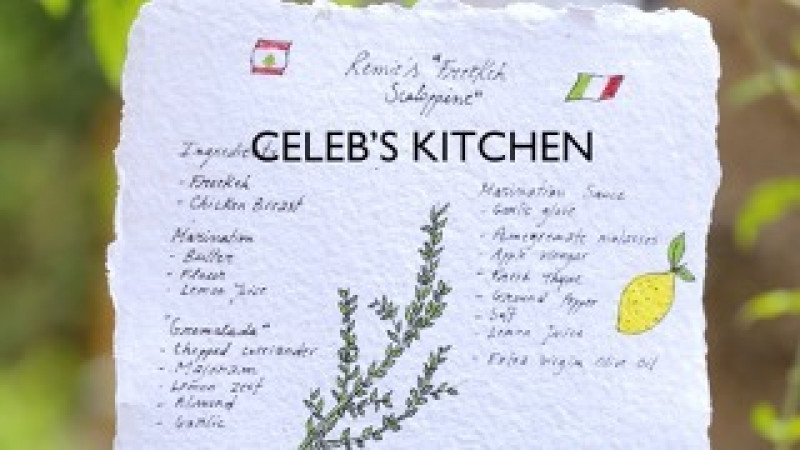 Remie's "Freekeh
Scaloppine"
CELEB'S KITCHEN
Ingredients
- Freekeh
- Chicken Breast
Marination
- Butter
- Flour
- Lemon Juice
"Gremolada"
- Chopped corriander
- Majoram
- Lemon zest
- Almond
- Garlic
Marination Sauce
- Garlic glove
- Pomegranate molasses
- Apple vinegar
- Fresh thyme
- Ground Pepper
- Salt
- Lemon Juice
- Extra virgin olive oil